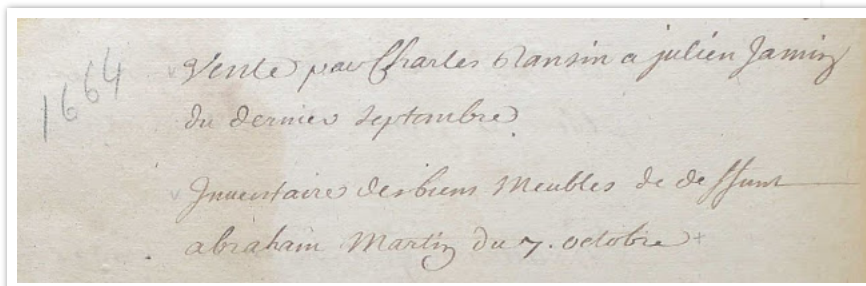 1664
Vente par Charles Ransin a julien Jamin
du dernier Septembre
Inventaire des biens Meubles de deffunt
abraham Martin du 7. octobre